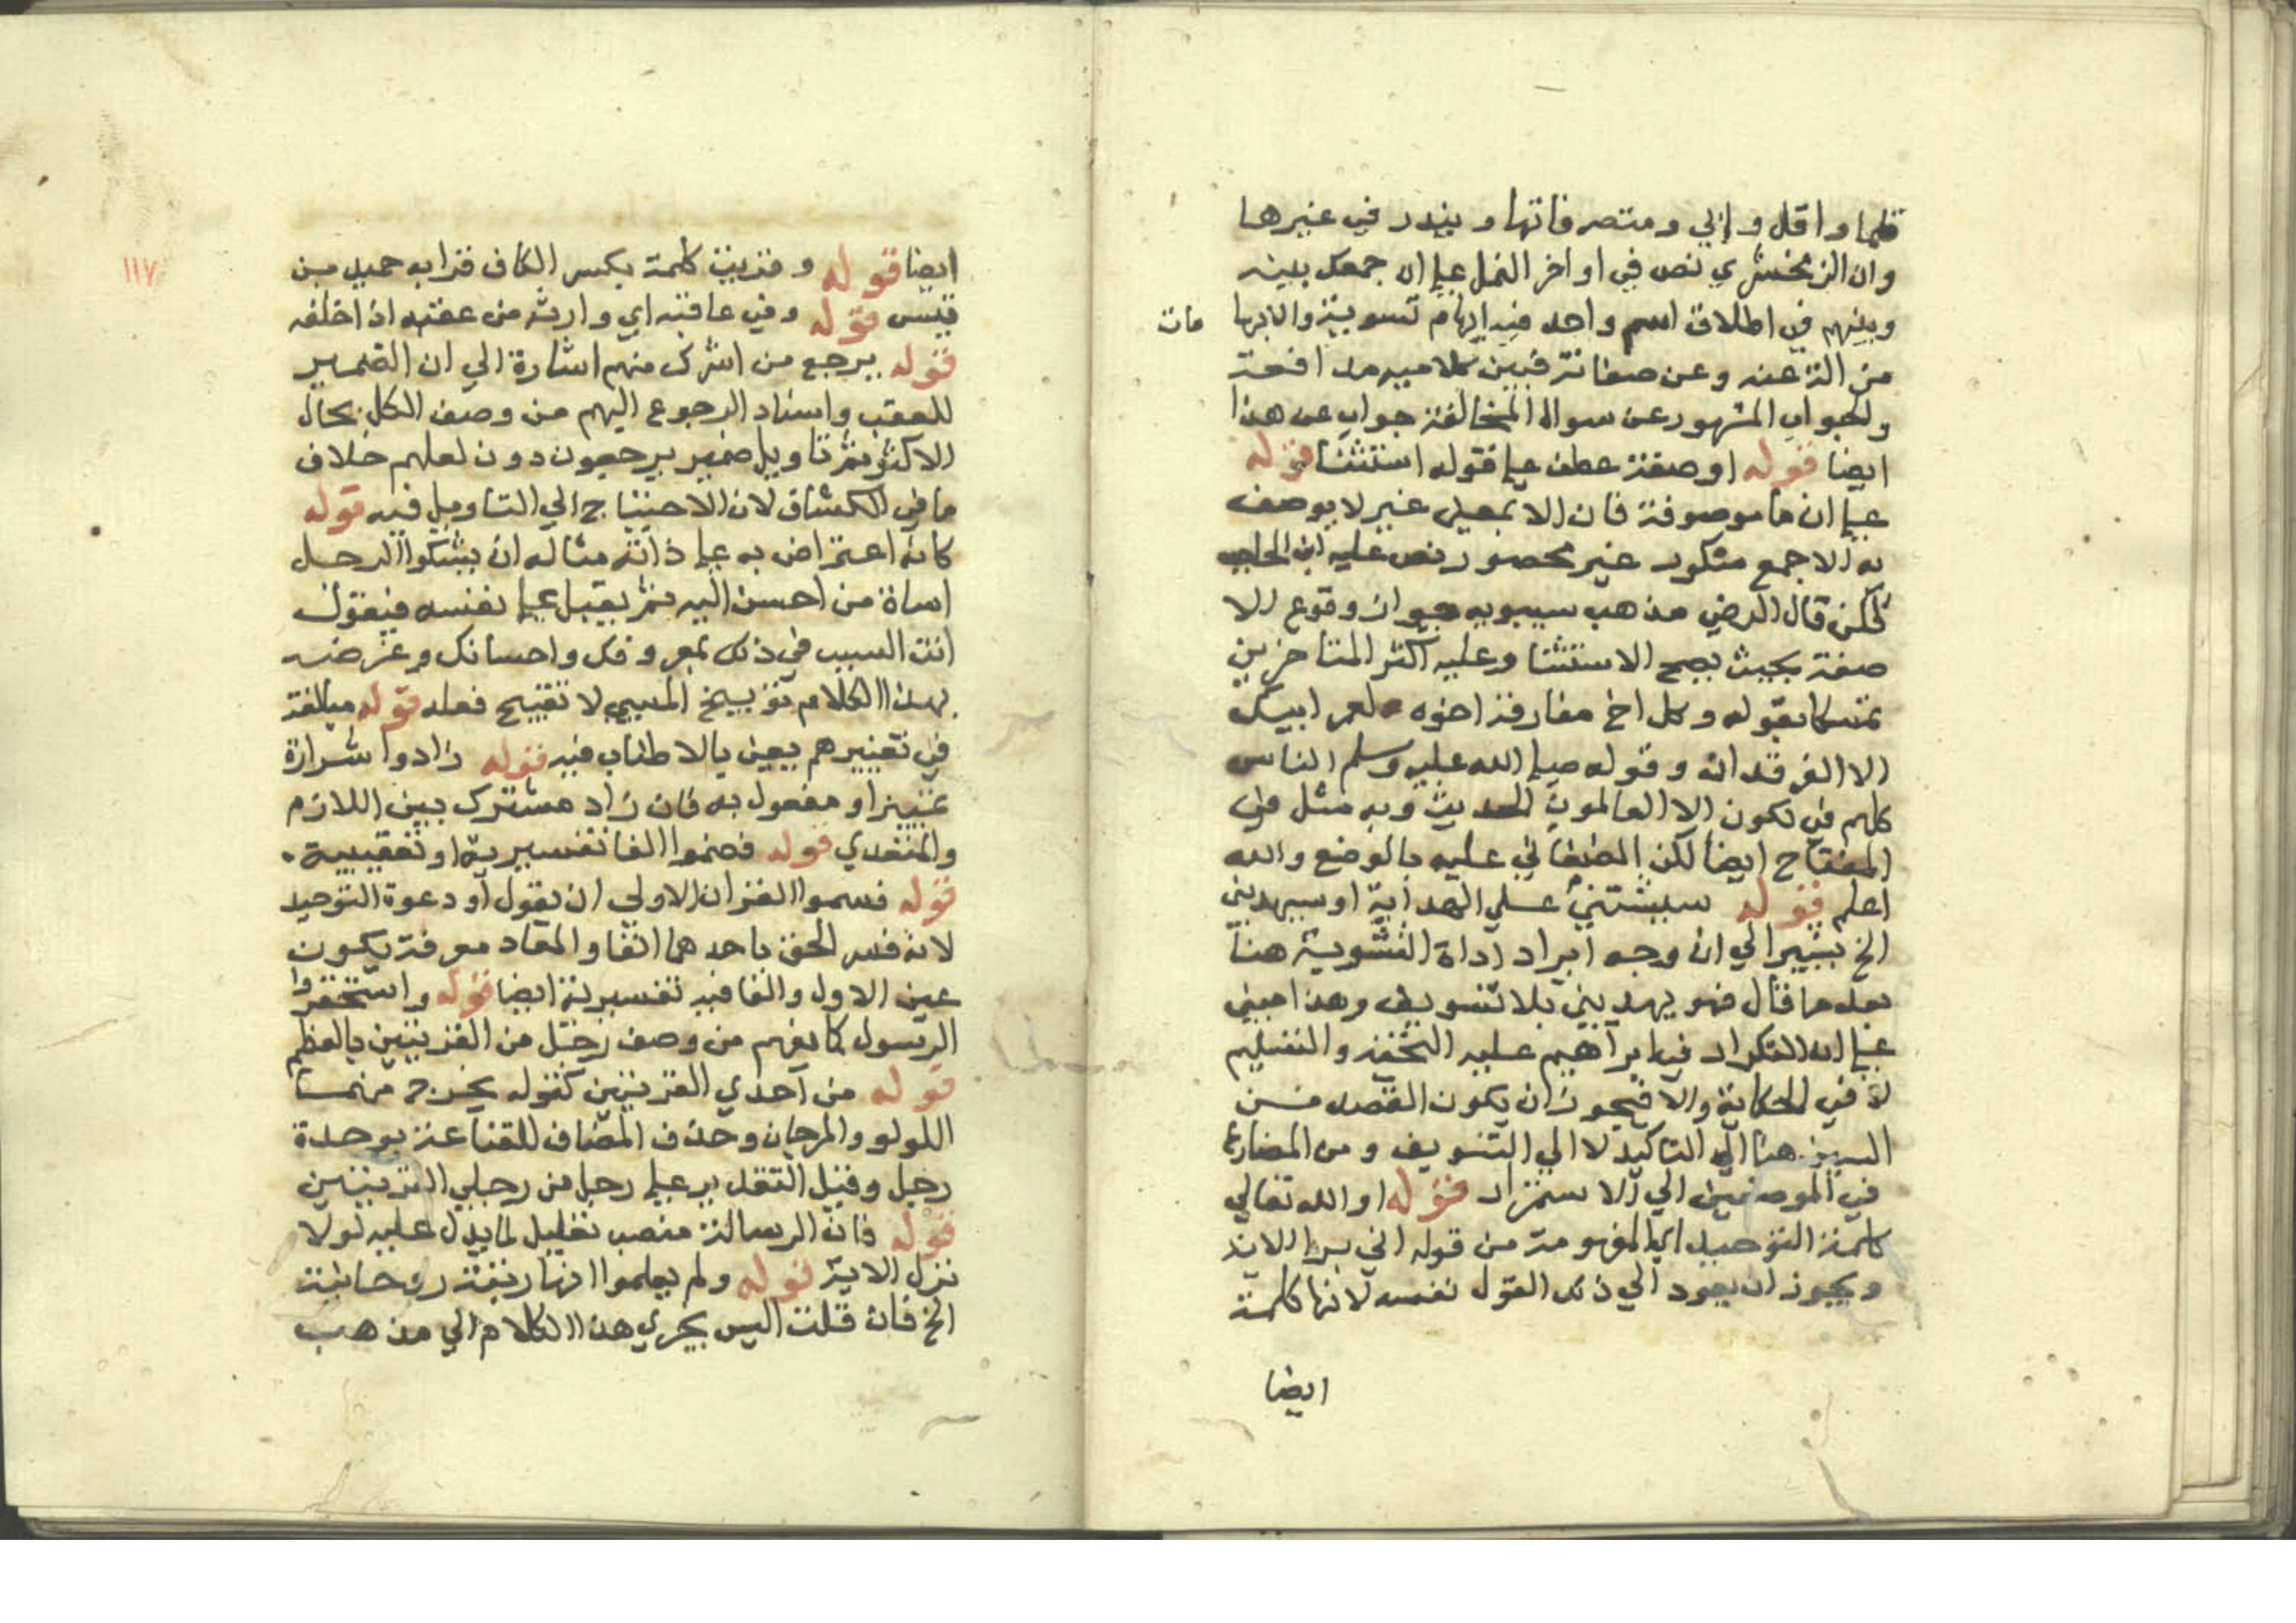 قلما واقل وابي ومتصرفاتها ويندر في غيرها
وان الزمخشري نص في اواخر النمل علي ان جمعك بينه
وبينهم في اطلاق اسم واحد فيه ايهام تسوية والايها مات
من الله عنه وعن صفاته فبين كلاميه مدافعة
والجواب المشهور عن سوال المخالفة جواب عن هذا
ايضا قوله او صفة عطف علي قوله استثنا قوله
علي ان ما موصوفة فان الا بمعني غير لا يوصف
به الا جمع منكور غير محصور نص عليه ابن الحاجب
لكن قال الرضي مذهب سيبويه جواز وقوع الا
صفة بحيث يصح الاستثنا وعليه اكثر المتاخرين
تمسكا بقوله وكل اخ مفارقه اخوه لعمر ابيك
الا الفرقدان وقوله صلي الله عليه وسلم الناس
كلهم في تكون الا العالمون الحديث وبه مثل في
المفتاح ايضا لكن عليه بالوضع والله
اعلم قوله سيثبتني علي الهداية او سيهديني
الخ يشير الي ان وجه ايراد اداة التسوية هنا
بعد ما قال فهو يهديني بلا تسويف وهذا مبني
علي ان التكرار في ابراهيم عليه التحية والتسليم
لا في الحكاية والا فيجوز ان يكون القصد من
السين هنا الي التاكيد لا الي التسويف ومن المضارع
في الموضعين الي الاستمرار قوله او الله تعالي
كلمة التوحيد اي المفهومة من قوله انني برا الاية
ويجوز ان يعود الي ذلك القول نفسه لانها كلمة
ايضا
١١٧
ايضا قوله وقريت كلمة بكسر الكاف قرا به حميد بن
قيس قوله وفي عاقبه اي وارثه من عقبه اذا خلفه
قوله يرجع من اشرك منهم اشارة الي ان الضمير
للعقب واسناد الرجوع اليهم من وصف الكل بحال
الاكثر ثم تاويل ضمير يرجعون دون لعلهم خلاف
ما في الكشاف لان الاحتياج الي التاويل فيه قوله
كانه اعتراض به علي ذاته مثاله ان يشكوا الرجل
اساة من احسن اليه ثم يقبل علي نفسه فيقول
انت السبب في ذلك بمعروفك واحسانك وغرضه
بهذا الكلام توبيخ المسيي لا تقبيح فعله قوله مبالغة
في تعييرهم يعني بالاطناب فيه قوله زادوا شرارة
تمييز او مفعول به فان زاد مشترك بين اللازم
والمتعدي قوله فضموا الفا تفسيرية او تعقيبية
قوله فسموا القران الاولي ان يقول او دعوة التوحيد
لانه فسر الحق باحدهما انفا والمعاد معرفة يكون
عين الاول والفا فيه تفسيرية ايضا قوله واستحقروا
الرسول كما يفهم من وصف رجل من القريتين بالعظم
قوله من احدي القريتين كقوله يخرج منهما
اللولو والمرجان وحذف المضاف للقناعة بوحدة
رجل وقيل التقدير علي رجل من رجلي القريتين
قوله فان الرسالة منصب تعليل لما يدل عليه لولا
نزل الاية قوله ولم يعلموا انها رتبة روحانية
الخ فان قلت اليس يجري هذا الكلام الي مذهب